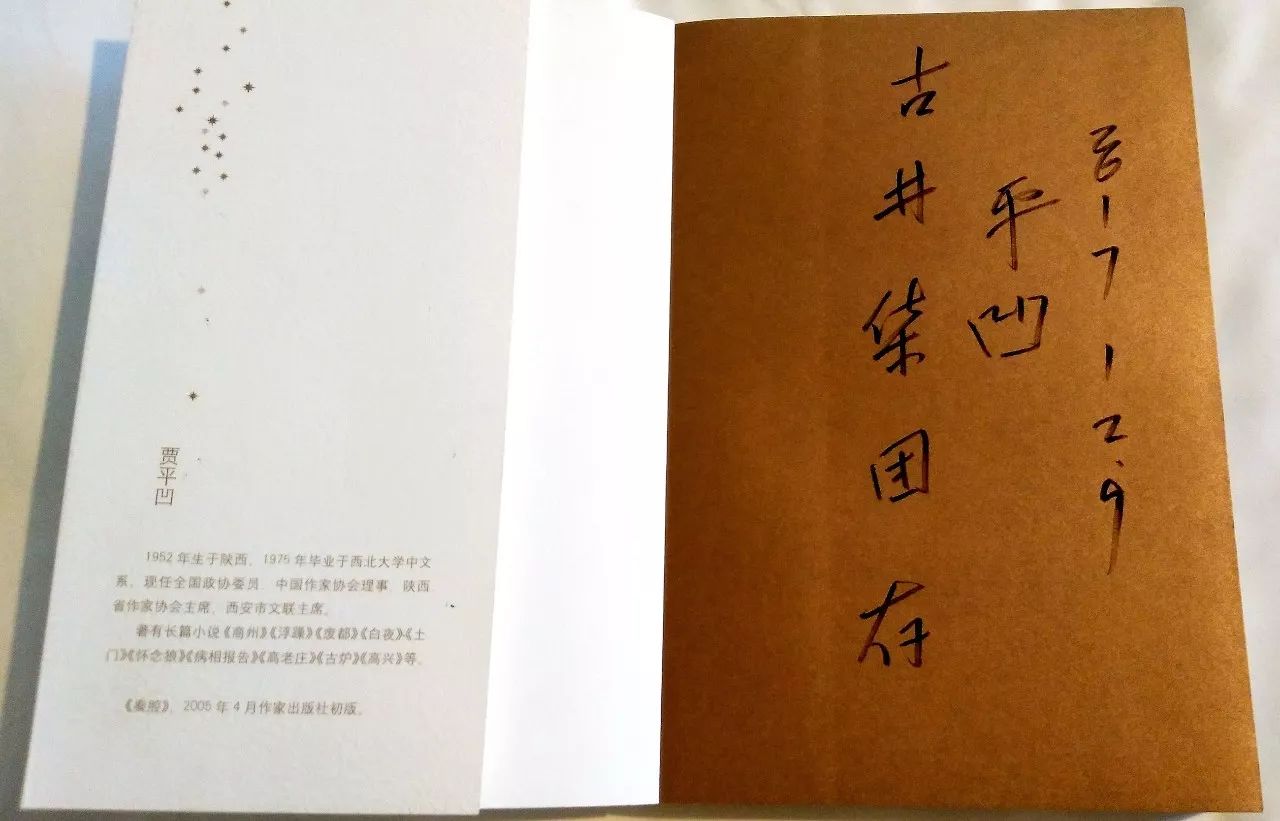 贾平凹
1952 年生于陕西，1975 年毕业于西北大学中文
系，现任全国政协委员、中国作家协会理事、陕西
省作家协会主席、西安市文联主席。
著有长篇小说《商州》《浮躁》《废都》《白夜》《土
门》《怀念狼》《病相报告》《高老庄》《古炉》《高兴》等。
《秦腔》，2005 年 4 月作家出版社初版。
古井集团存
平凹
17 12.9